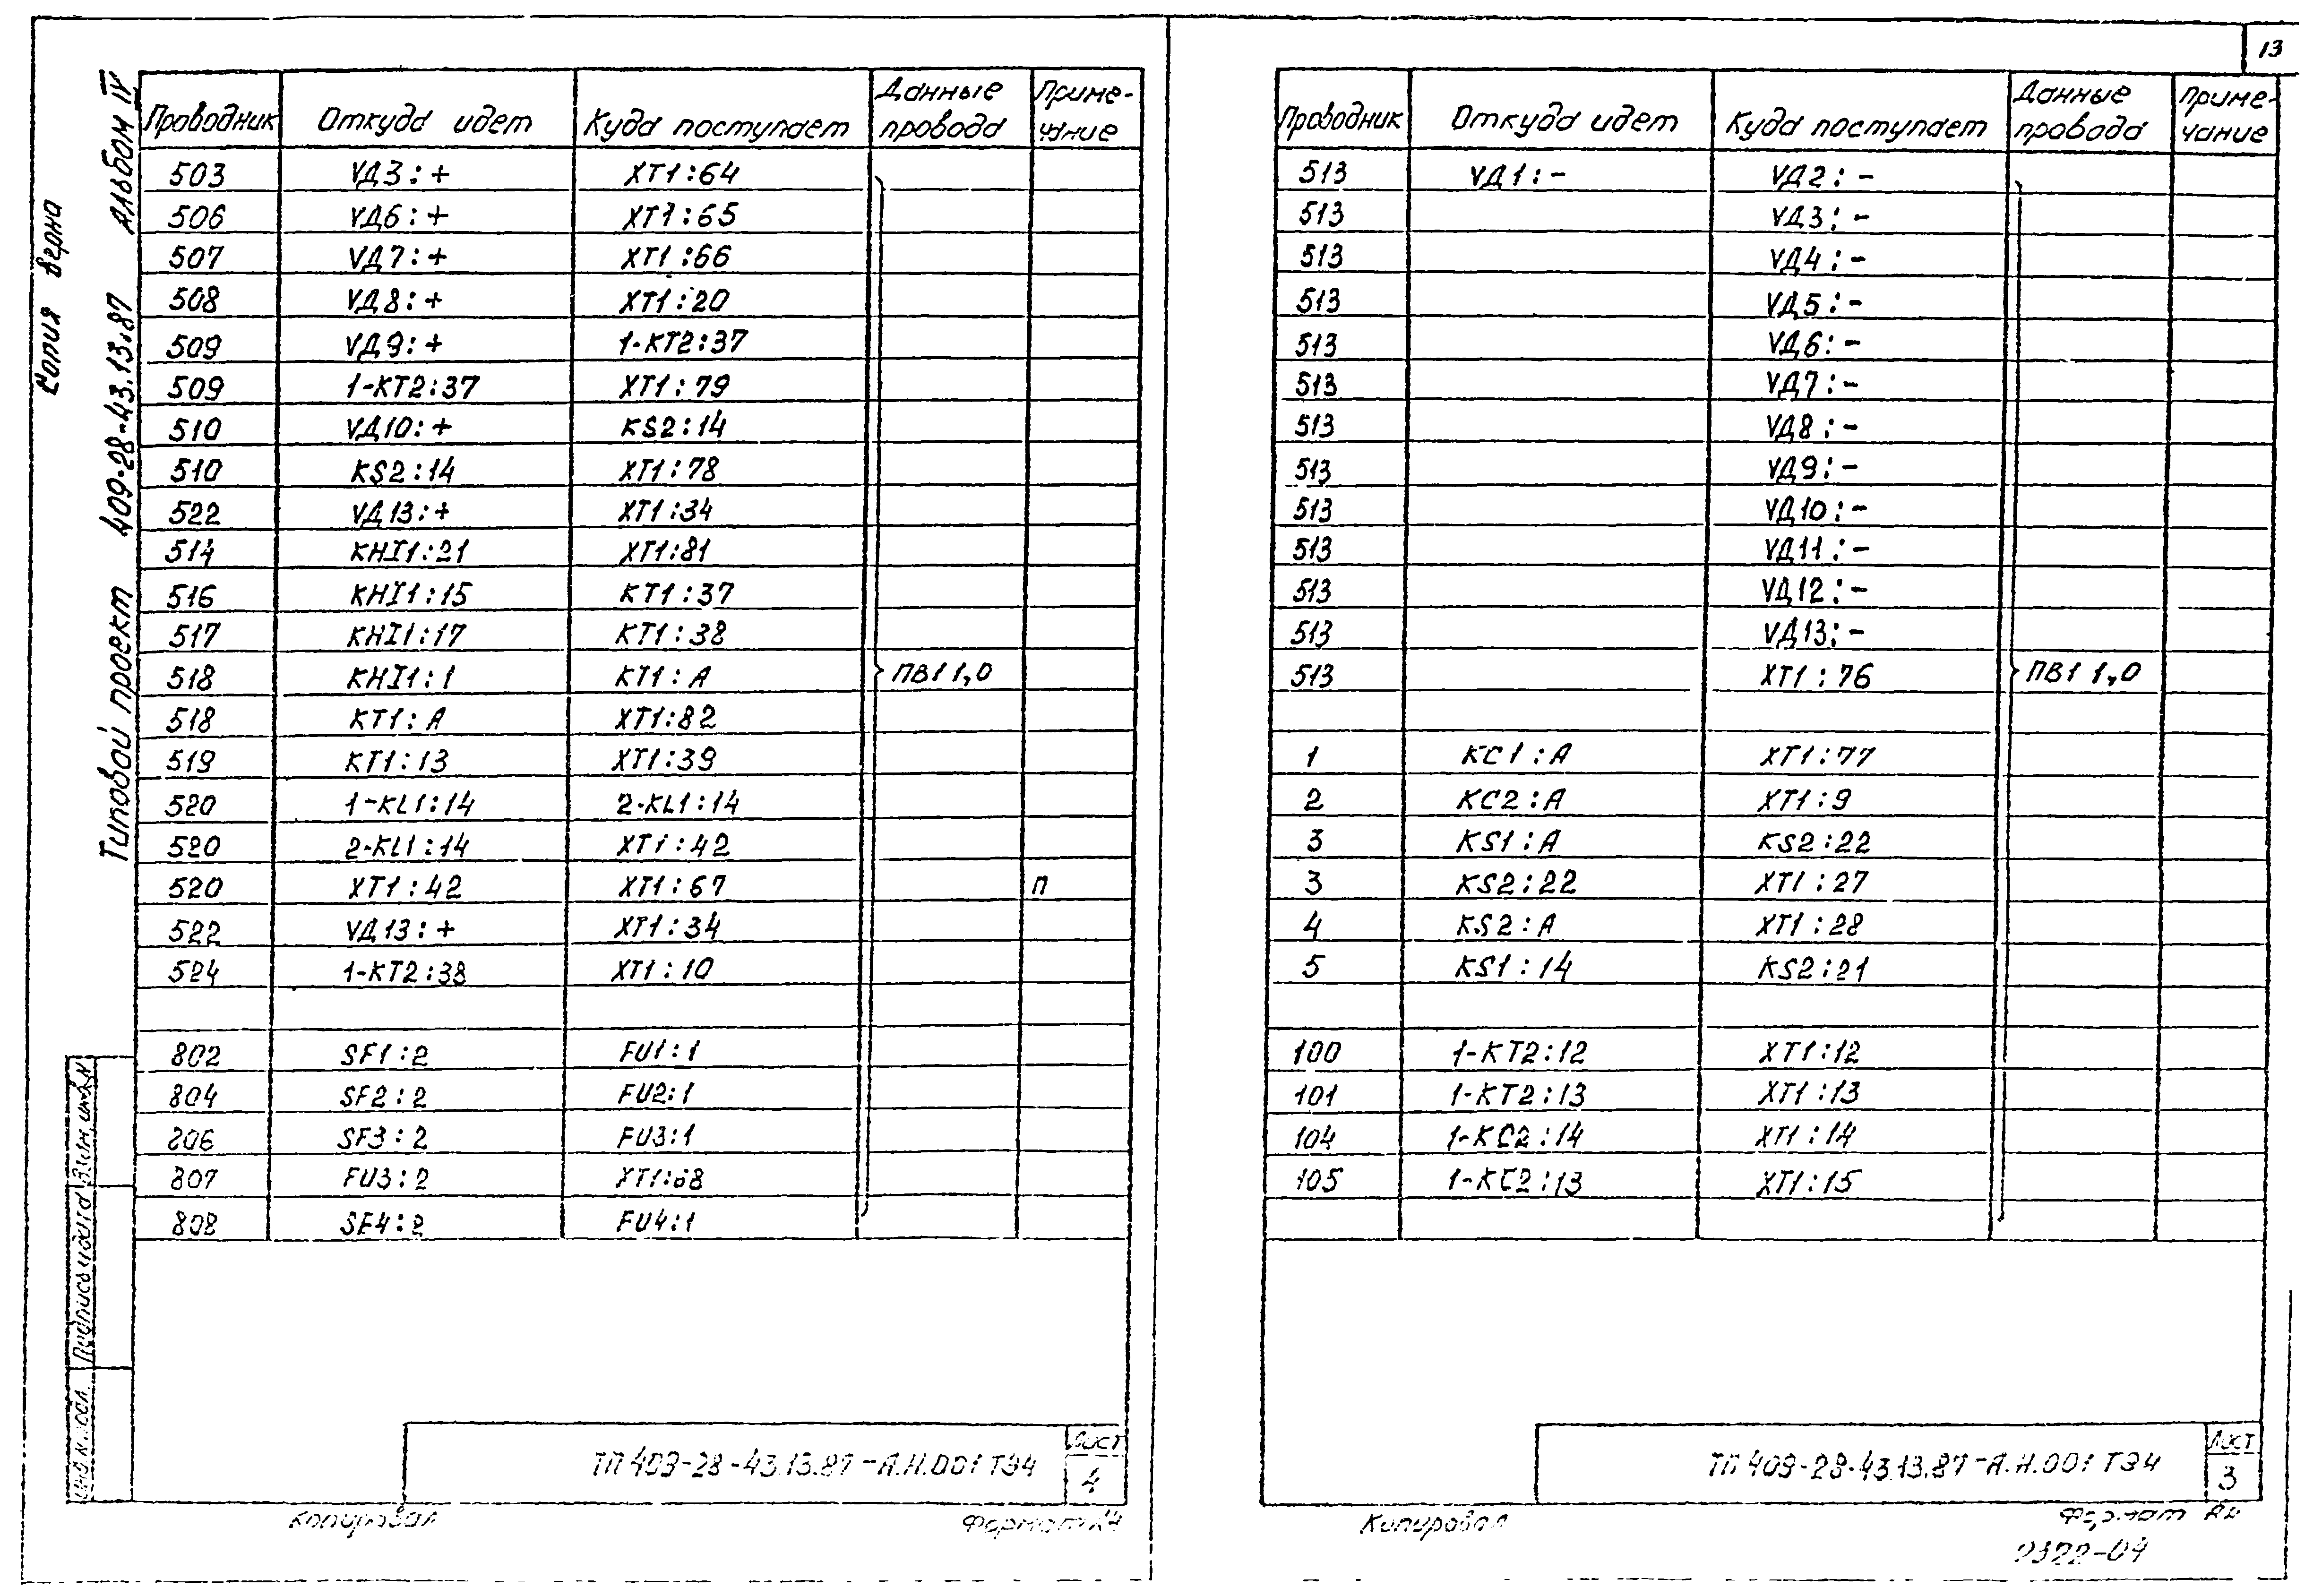 13
Копия верна
Типовой проект 409-28-43.13.87 Альбом IV
Проводник Откуда идет Куда поступает Данные провода Приме-чание
503 VД3:+ XT1:64
506 VД6:+ XT1:65
507 VД7:+ XT1:66
508 VД8:+ XT1:20
509 VД9:+ 1-KT2:37
509 1-KT2:37 XT1:79
510 VД10:+ KS2:14
510 KS2:14 XT1:78
522 VД13:+ XT1:34
514 KHI1:21 XT1:81
516 KHI1:15 KT1:37
517 KHI1:17 KT1:38
518 KHI1:1 KT1:A ПВ1 1,0
518 KT1:A XT1:82
519 KT1:13 XT1:39
520 1-KL1:14 2-KL1:14
520 2-KL1:14 XT1:42
520 XT1:42 XT1:67 П
522 VД13:+ XT1:34
524 1-KT2:38 XT1:10
802 SF1:2 FU1:1
804 SF2:2 FU2:1
806 SF3:2 FU3:1
807 FU3:2 XT1:68
808 SF4:2 FU4:1
Инв.N подл. Подпись и дата Взам.инв.N
ТП 409-28-43.13.87-А.Н.001 ТЭ4
Лист
4
Копировал Формат А4
Проводник Откуда идет Куда поступает Данные провода Приме-чание
513 VД1:- VД2:-
513 VД3:-
513 VД4:-
513 VД5:-
513 VД6:-
513 VД7:-
513 VД8:-
513 VД9:-
513 VД10:-
513 VД11:-
513 VД12:-
513 VД13:-
513 XT1:76 ПВ1 1,0
1 KC1:A XT1:77
2 KC2:A XT1:9
3 KS1:A KS2:22
3 KS2:22 XT1:27
4 KS2:A XT1:28
5 KS1:14 KS2:21
100 1-KT2:12 XT1:12
101 1-KT2:13 XT1:13
104 1-KC2:14 XT1:14
105 1-KC2:13 XT1:15
ТП 409-28-43.13.87-А.Н.001 ТЭ4
Лист
3
Копировал Формат А4
2322-04